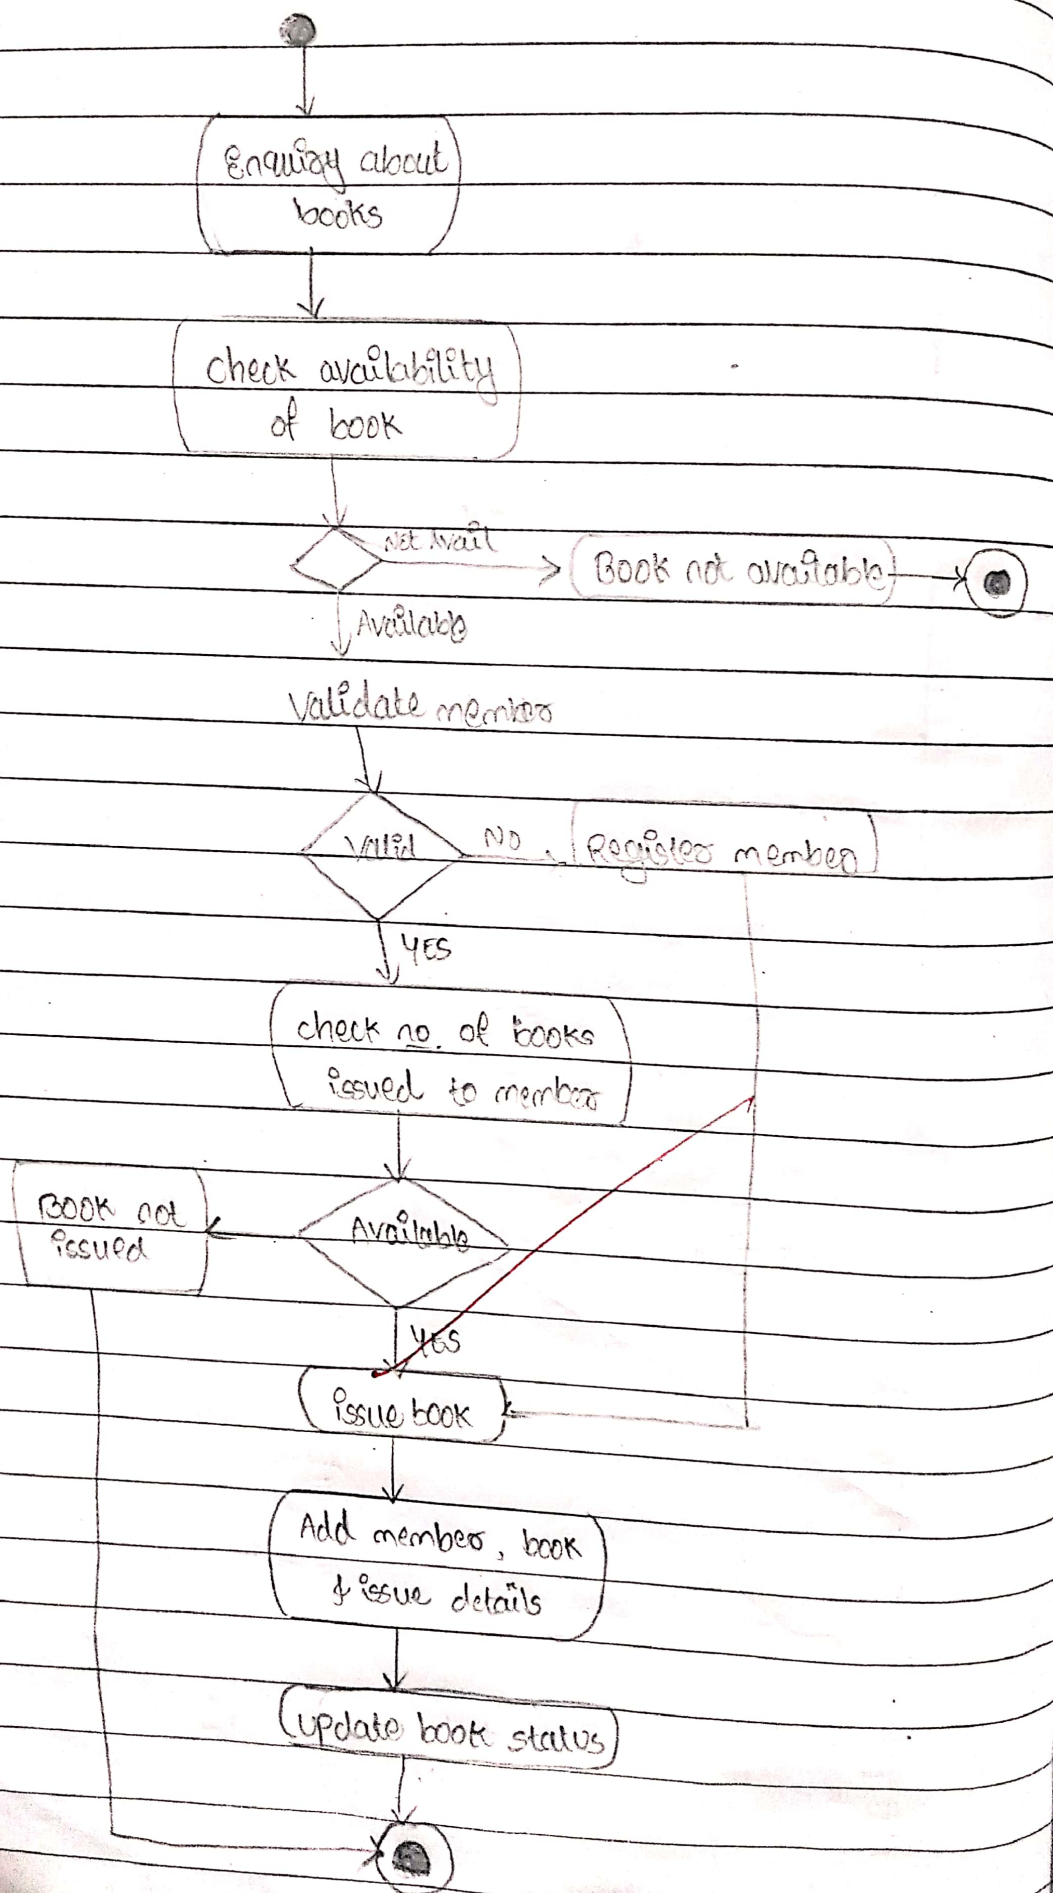 Enquiry about
books
check availability
of book
Not Avail
Book not available
Available
Validate member
Valid
NO
Register member
YES
check no. of books
issued to member
Book not
issued
Available
YES
issue book
Add member, book
& issue details
update book status